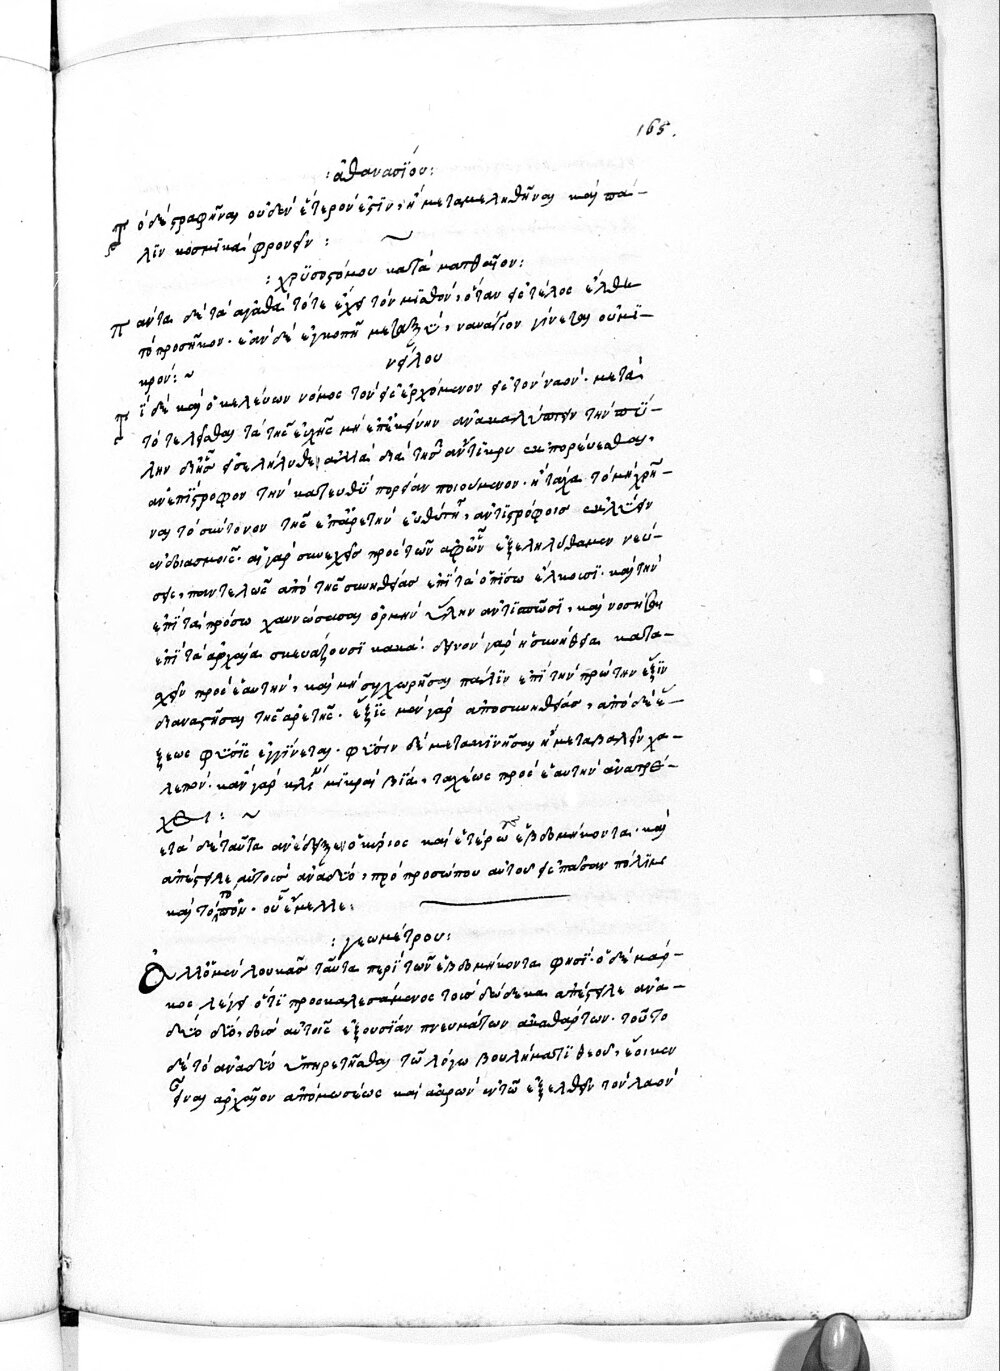 165.
: ἀθανασίου :
Τὸ δὲ στραφῆναι οὐδὲν ἕτερον ἐστὶν, ἢ μεταμεληθῆναι καὶ πά-
λιν κοσμικὰ φρονεῖν :
: χρυσοστόμου κατὰ ματθαῖον :
Πάντα δὲ τὰ ἀγαθὰ τότε ἔχει τὸν μισθὸν, ὅταν εἰς τέλος ἔλθῃ
τὸ προσῆκον. ἐὰν δὲ ἐγκοπῇ μεταξὺ, ναυάγιον γίνεται οὐ μι-
κρόν : ~
νείλου
Τί δὲ καὶ ὁ κελεύων νόμος τὸν εἰσερχόμενον εἰς τὸν ναὸν. μετὰ
τὸ τελέσαι τὰ τῆς εὐχῆς μὴ ἐπ' ἐκείνην ἀνακάμπτειν τὴν πύ-
λην δι' ἧς εἰσελήλυθε, ἀλλὰ διὰ τῆς ἄντικρυ ἐκπορεύεσθαι,
ἀνεπίστροφον τὴν κατευθὺ πορείαν ποιούμενον. ἢ τάχα τὸ μὴ χρῆ-
ναι τὸ σύντονον τῆς ἐπ' ἀρετὴν εὐθύτητος, ἀντιστρόφοις ἐκλύειν
ἐνδιασμοῖς. αἱ γὰρ συνεχεῖς πρὸς τῶν ἀφ' ὧν ἐξεληλύθαμεν νεύ-
σεις, παντελῶς ἀπὸ τῆς συνηθείας ἐπὶ τὰ ὀπίσω ἕλκουσι. καὶ τὴν
ἐπὶ τὰ πρόσω χαυνώσασαι ὁρμὴν ὅλην ἀντισπῶσι, καὶ νοσῆσαι
ἐπὶ τὰ ἀρχαῖα σκευάζουσι κακά. δεινὸν γὰρ ἡ συνήθεια κατα-
σχεῖν πρὸς ἑαυτὴν, καὶ μὴ συγχωρῆσαι πάλιν ἐπὶ τὴν πρώτην ἕξιν
διαναστῆσαι τῆς ἀρετῆς. ἕξις μὲν γὰρ ἀπὸ συνηθείας, ἀπὸ δὲ ἕ-
ξεως φύσις ἐγγίνεται. φύσιν δὲ μετακινῆσαι ἢ μεταβαλεῖν χα-
λεπόν. κἂν γὰρ μικρὰ βία, ταχέως πρὸς ἑαυτὴν ἀνατρέ-
χει : ~
ετὰ δὲ ταῦτα ἀνέδειξεν ὁ κύριος καὶ ἑτέρους ἑβδομήκοντα. καὶ
ἀπέστειλε αὐτοὺς ἀνὰ δύο, πρὸ προσώπου αὐτοῦ εἰς πᾶσαν πόλιν
καὶ τόπον. οὗ ἔμελλε :
: γεωμέτρου :
Ἀλλ' ὁ μὲν λουκᾶς ταῦτα περὶ τῶν ἑβδομήκοντα φησί. ὁ δὲ μάρ-
κος λέγει ὅτι προσκαλεσάμενος τοὺς δώδεκα ἀπέστειλε ἀνὰ
δύο δύο, δοὺς αὐτοῖς ἐξουσίαν πνευμάτων ἀκαθάρτων. τοῦτο
δὲ τὸ ἀνὰ δύο ὑπηρετῆσαι τῷ λόγῳ βουλήματι θεοῦ, ἔοικεν
εἶναι ἀρχαῖον ἀπὸ μωσέως καὶ ἀαρὼν ἐν τῷ ἐξελθεῖν τὸν λαὸν